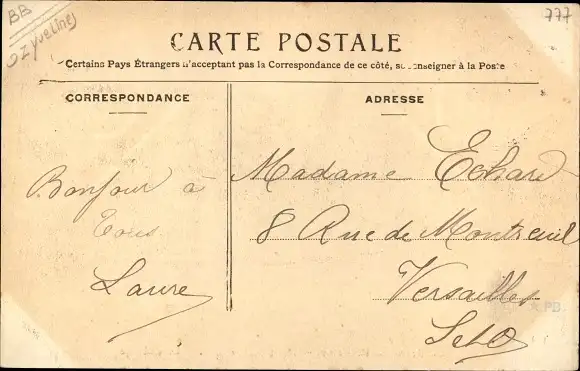 BB
Ozyvelines
777
CARTE POSTALE
Certains Pays Étrangers n'acceptant pas la Correspondance de ce côté, se renseigner à la Poste
CORRESPONDANCE
Bonjour à
Tous
Laure
ADRESSE
Madame Echard
8 Rue de Montreuil
Versailles
S et O
PB